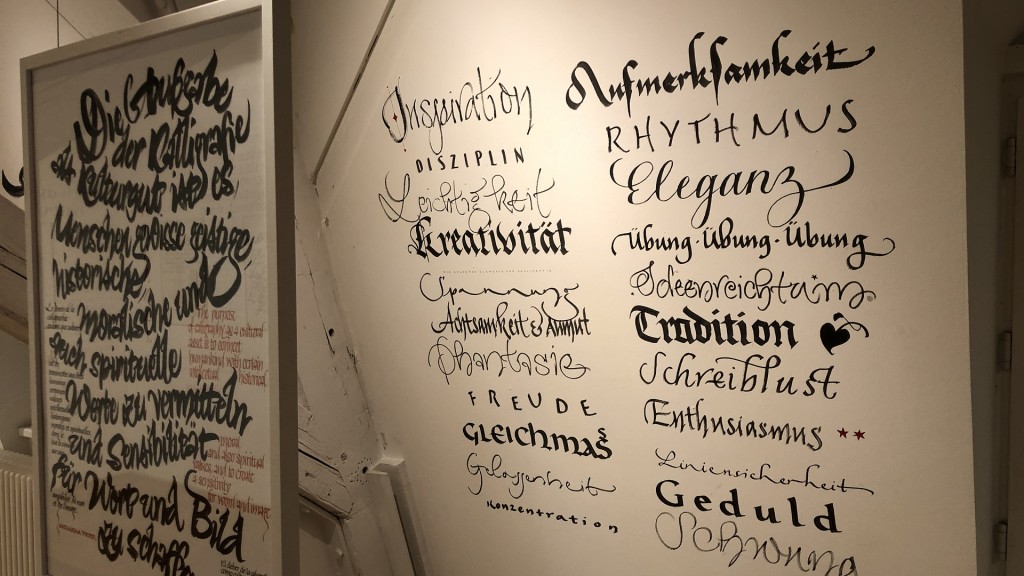 Die Aufgabe
der Kalligrafie
als Kulturgut ist es
Menschen gewisse geistige,
historische
moralische und
auch spirituelle
Werte zu vermitteln
und Sensibilität
für Wort und Bild
zu schaffen
The purpose
of calligraphy as a cultural
asset is to connect
humankind with certain
intellectual historical
moral
and also spiritual
values, and to create
a sensitivity
for word and image
Inspiration
DISZIPLIN
Leichtigkeit
Kreativität
Spannung
Achtsamkeit & Anmut
Phantasie
FREUDE
GLEICHMASS
Gelassenheit
Konzentration
Aufmerksamkeit
RHYTHMUS
Eleganz
Übung · Übung · Übung
Ideenreichtum
Tradition
Schreiblust
Enthusiasmus **
Liniensicherheit
Geduld
Schwung